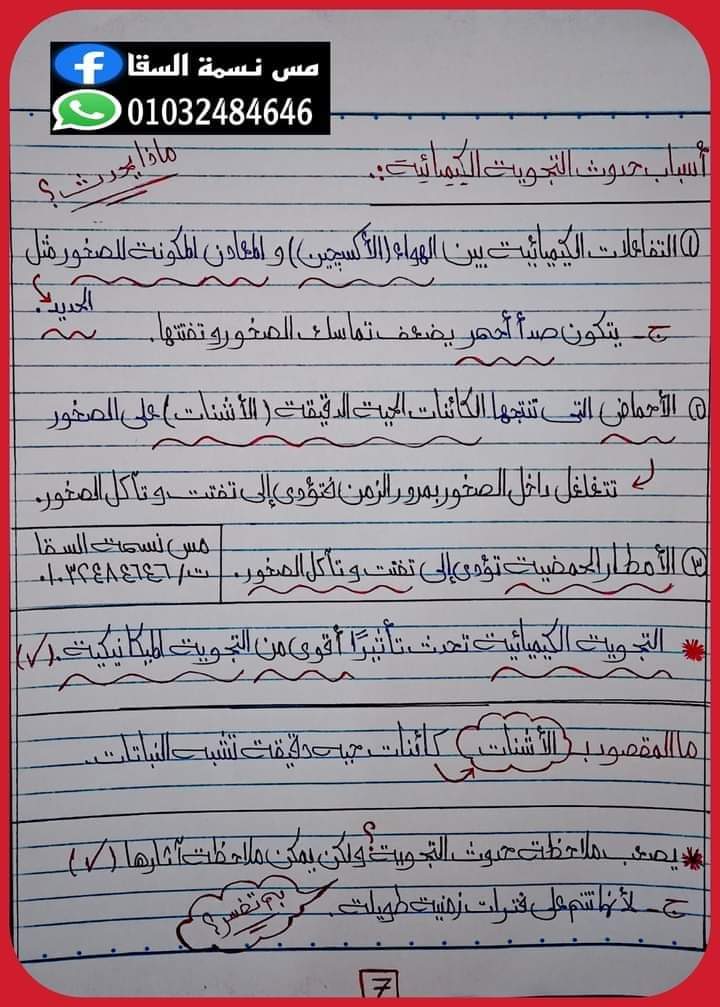 مس نسمة السقا
01032484646
أسباب حدوث التجوية الكيميائية:.
ماذا يحدث؟
① التفاعلات الكيميائية بين الهواء (الأكسجين) و المعادن المكونة للصخور مثل
الحديد.
ج- يتكون صدأ أحمر يضعف تماسك الصخور و تفتتها.
② الأحماض التى تنتجها الكائنات الحية الدقيقة (الأشنات) على الصخور
تتغلغل داخل الصخور بمرور الزمن فتؤدى إلى تفتت و تآكل الصخور.
③ الأمطار الحمضية تؤدى إلى تفتت و تآكل الصخور.
مس نسمة السقا
ت/ ٠١٠٣٢٤٨٤٦٤٦
* التجوية الكيميائية تحدث تأثيرًا أقوى من التجوية الميكانيكية. (✓)
ما المقصود ب الأشنات كائنات حية دقيقة تشبه النباتات.
* يصعب ملاحظة حدوث التجوية؟ ولكن يمكن ملاحظة آثارها (✓)
بم تفسر؟
ج- لأنها تتم على فترات زمنية طويلة.
7